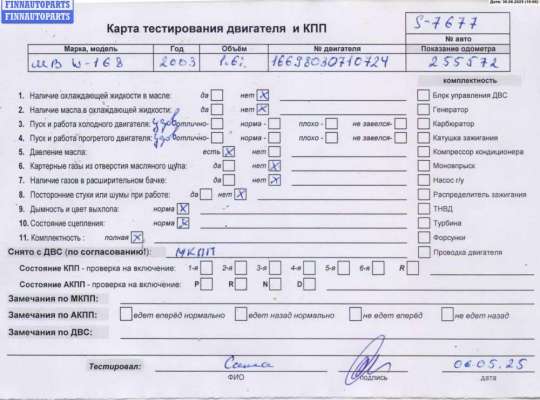 FINNAUTOPARTS
FINNAUTOPARTS
Карта тестирования двигателя и КПП
S-7677
№ авто
Марка, модель Год Объём № двигателя Показание одометра
МВ W-168 2003 1.6i 16698030710724 255572
комплектность
1. Наличие охлаждающей жидкости в масле: да нет x
Блок управления ДВС
2. Наличие масла в охлаждающей жидкости: да нет x
Генератор
3. Пуск и работа холодного двигателя: удов отлично- норма - плохо - не завелся-
Карбюратор
4. Пуск и работа прогретого двигателя: удов отлично- норма - плохо - не завелся-
Катушка зажигания
5. Давление масла: есть x нет
Компрессор кондиционера
6. Картерные газы из отверстия масляного щупа: да нет x
Моновпрыск
7. Наличие газов в расширительном бачке: да нет x
Насос г/у
8. Посторонние стуки или шумы при работе: да нет x
Распределитель зажигания
9. Дымность и цвет выхлопа: норма x
ТНВД
10. Состояние сцепления: норма x
Турбина
11. Комплектность : полная x
Форсунки
Снято с ДВС (по согласованию!): МКПП
Проводка двигателя
Состояние КПП - проверка на включение: 1-я 2-я 3-я 4-я 5-я 6-я R
Состояние АКПП - проверка на включение: P R N D
Замечания по МКПП:
Замечания по АКПП: едет вперёд нормально едет назад нормально не едет вперёд не едет назад
Замечания по ДВС:
Тестировал: 06.05.25
ФИО подпись дата